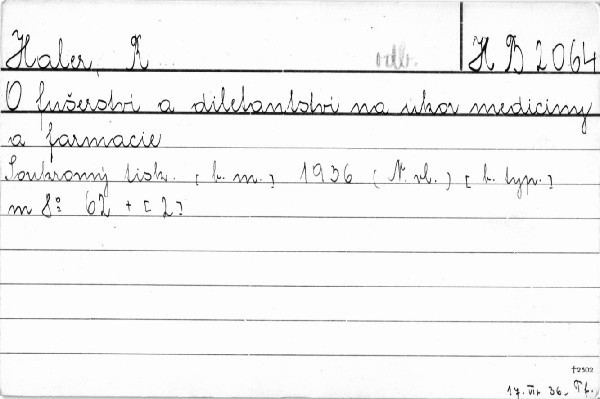 Haler, R odb. H B 2064
O fušerství a diletantství na úkor medicíny
a farmacie
Soukromý tisk. [b. m.] 1936 (N. vl.) [b. typ.]
m 8° 62 + [2]
†2502
17. VI. 36. Tf.